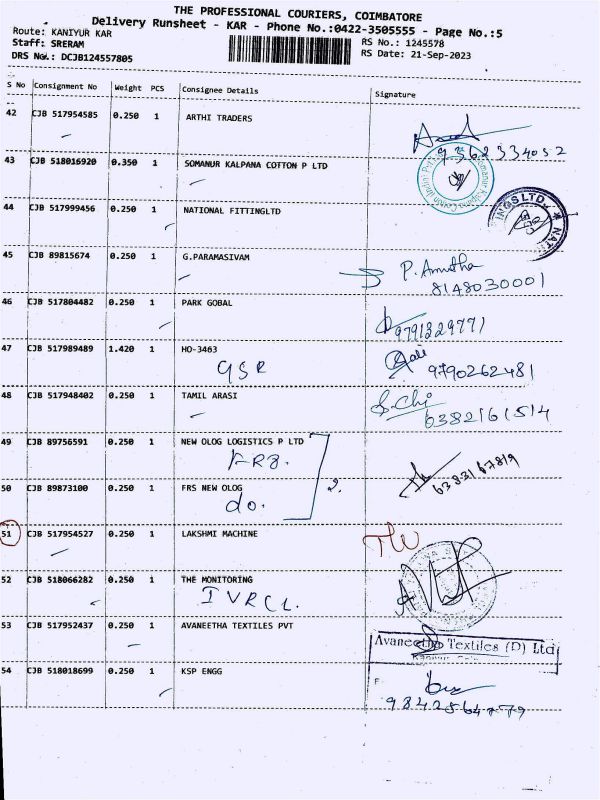 THE PROFESSIONAL COURIERS, COIMBATORE
Delivery Runsheet - KAR - Phone No.:0422-3505555 - Page No.:5
Route: KANIYUR KAR
Staff: SRERAM
DRS No.: DCJB124557805
RS No.: 1245578
RS Date: 21-Sep-2023
S No Consignment No Weight PCS Consignee Details Signature
42 CJB 517954585 0.250 1 ARTHI TRADERS
9362334052
43 CJB 518016920 0.350 1 SOMANUR KALPANA COTTON P LTD
44 CJB 517999456 0.250 1 NATIONAL FITTINGLTD
INGS LTD. ★ NAT
45 CJB 89815674 0.250 1 G.PARAMASIVAM
P. Amutha
8148030001
46 CJB 517804482 0.250 1 PARK GOBAL
9791329771
47 CJB 517989489 1.420 1 HO-3463
GSR
9790262481
48 CJB 517948402 0.250 1 TAMIL ARASI
6382161514
49 CJB 89756591 0.250 1 NEW OLOG LOGISTICS P LTD
50 CJB 89873100 0.250 1 FRS NEW OLOG
do. 2.
51 CJB 517954527 0.250 1 LAKSHMI MACHINE
52 CJB 518066282 0.250 1 THE MONITORING
IVRCL.
53 CJB 517952437 0.250 1 AVANEETHA TEXTILES PVT
Avaneetha Textiles (P) Ltd
54 CJB 518018699 0.250 1 KSP ENGG